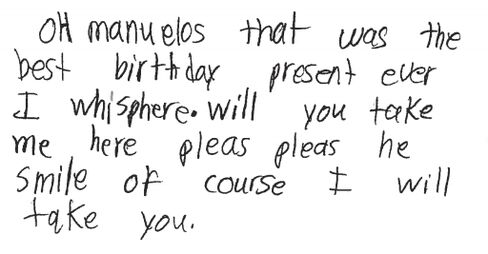 OH manuelos that was the
best birthday present ever
I whisphere. will you take
me here pleas pleas he
smile of course I will
take you.